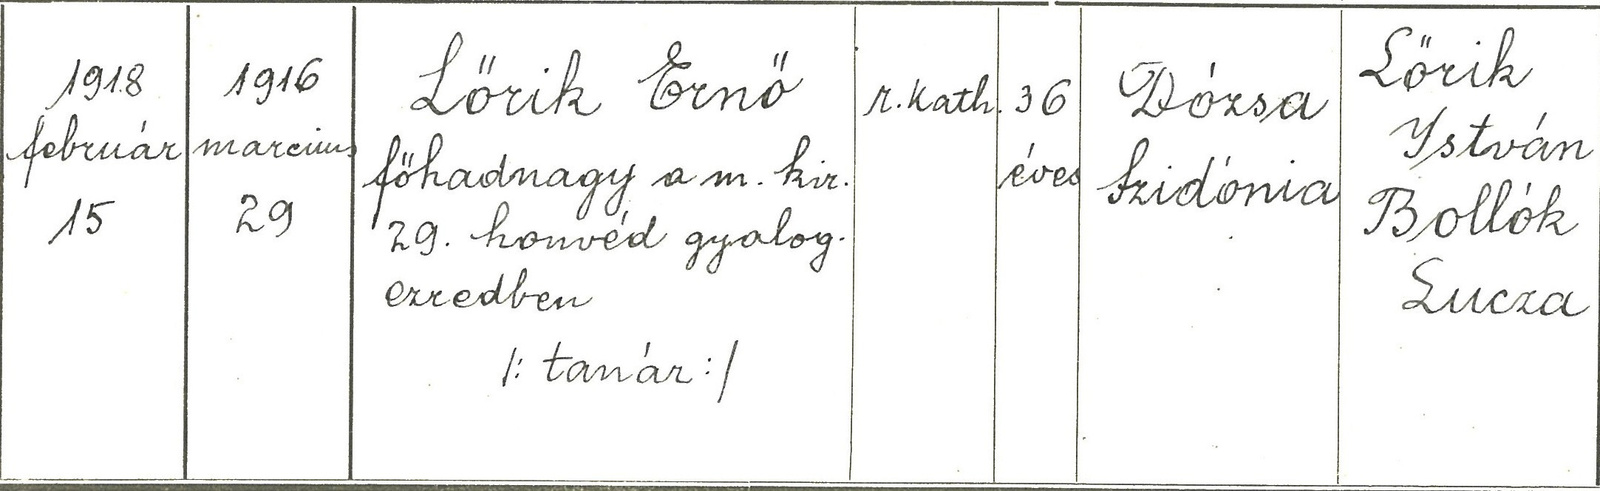 1918
február
15
1916
marcius
29
Lőrik Ernő
főhadnagy a m. kir.
29. honvéd gyalog-
ezredben
/: tanár :/
r. kath.
36
éves
Dózsa
Szidónia
Lőrik
István
Bollók
Lucza